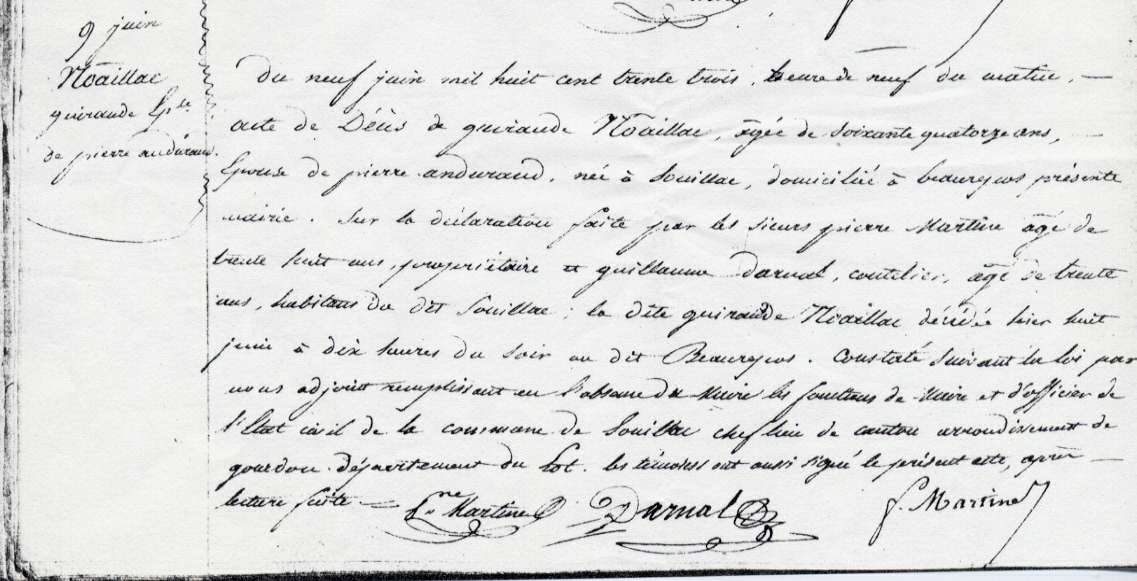 9 juin
Noaillac
guiraude Epse
de pierre anduraud.
Du neuf juin mil huit cent trente trois, heure de neuf du matin, —
acte de Décès de guiraude Noaillac, âgée de soixante quatorze ans, —
Epouse de pierre anduraud, née à Souillac, domiciliée à beauregos présente
mairie. Sur la déclaration faite par les sieurs pierre Martine âgé de
trente huit ans, propriétaire et guillaume darnal, coutelier, âgé de trente
ans, habitans du dit Souillac ; la dite guiraude Noaillac décédée hier huit
juin à dix heures du soir au dit Beauregos. Constaté suivant la loi par
nous adjoint remplissant en l'absence du Maire les fonctions de Maire et d'officier de
l'Etat civil de la commune de Souillac chef lieu de canton arrondissement de
gourdon département du Lot. les témoins ont aussi signé le présent acte, après —
lecture faite —
Martine
Darnal
Martine